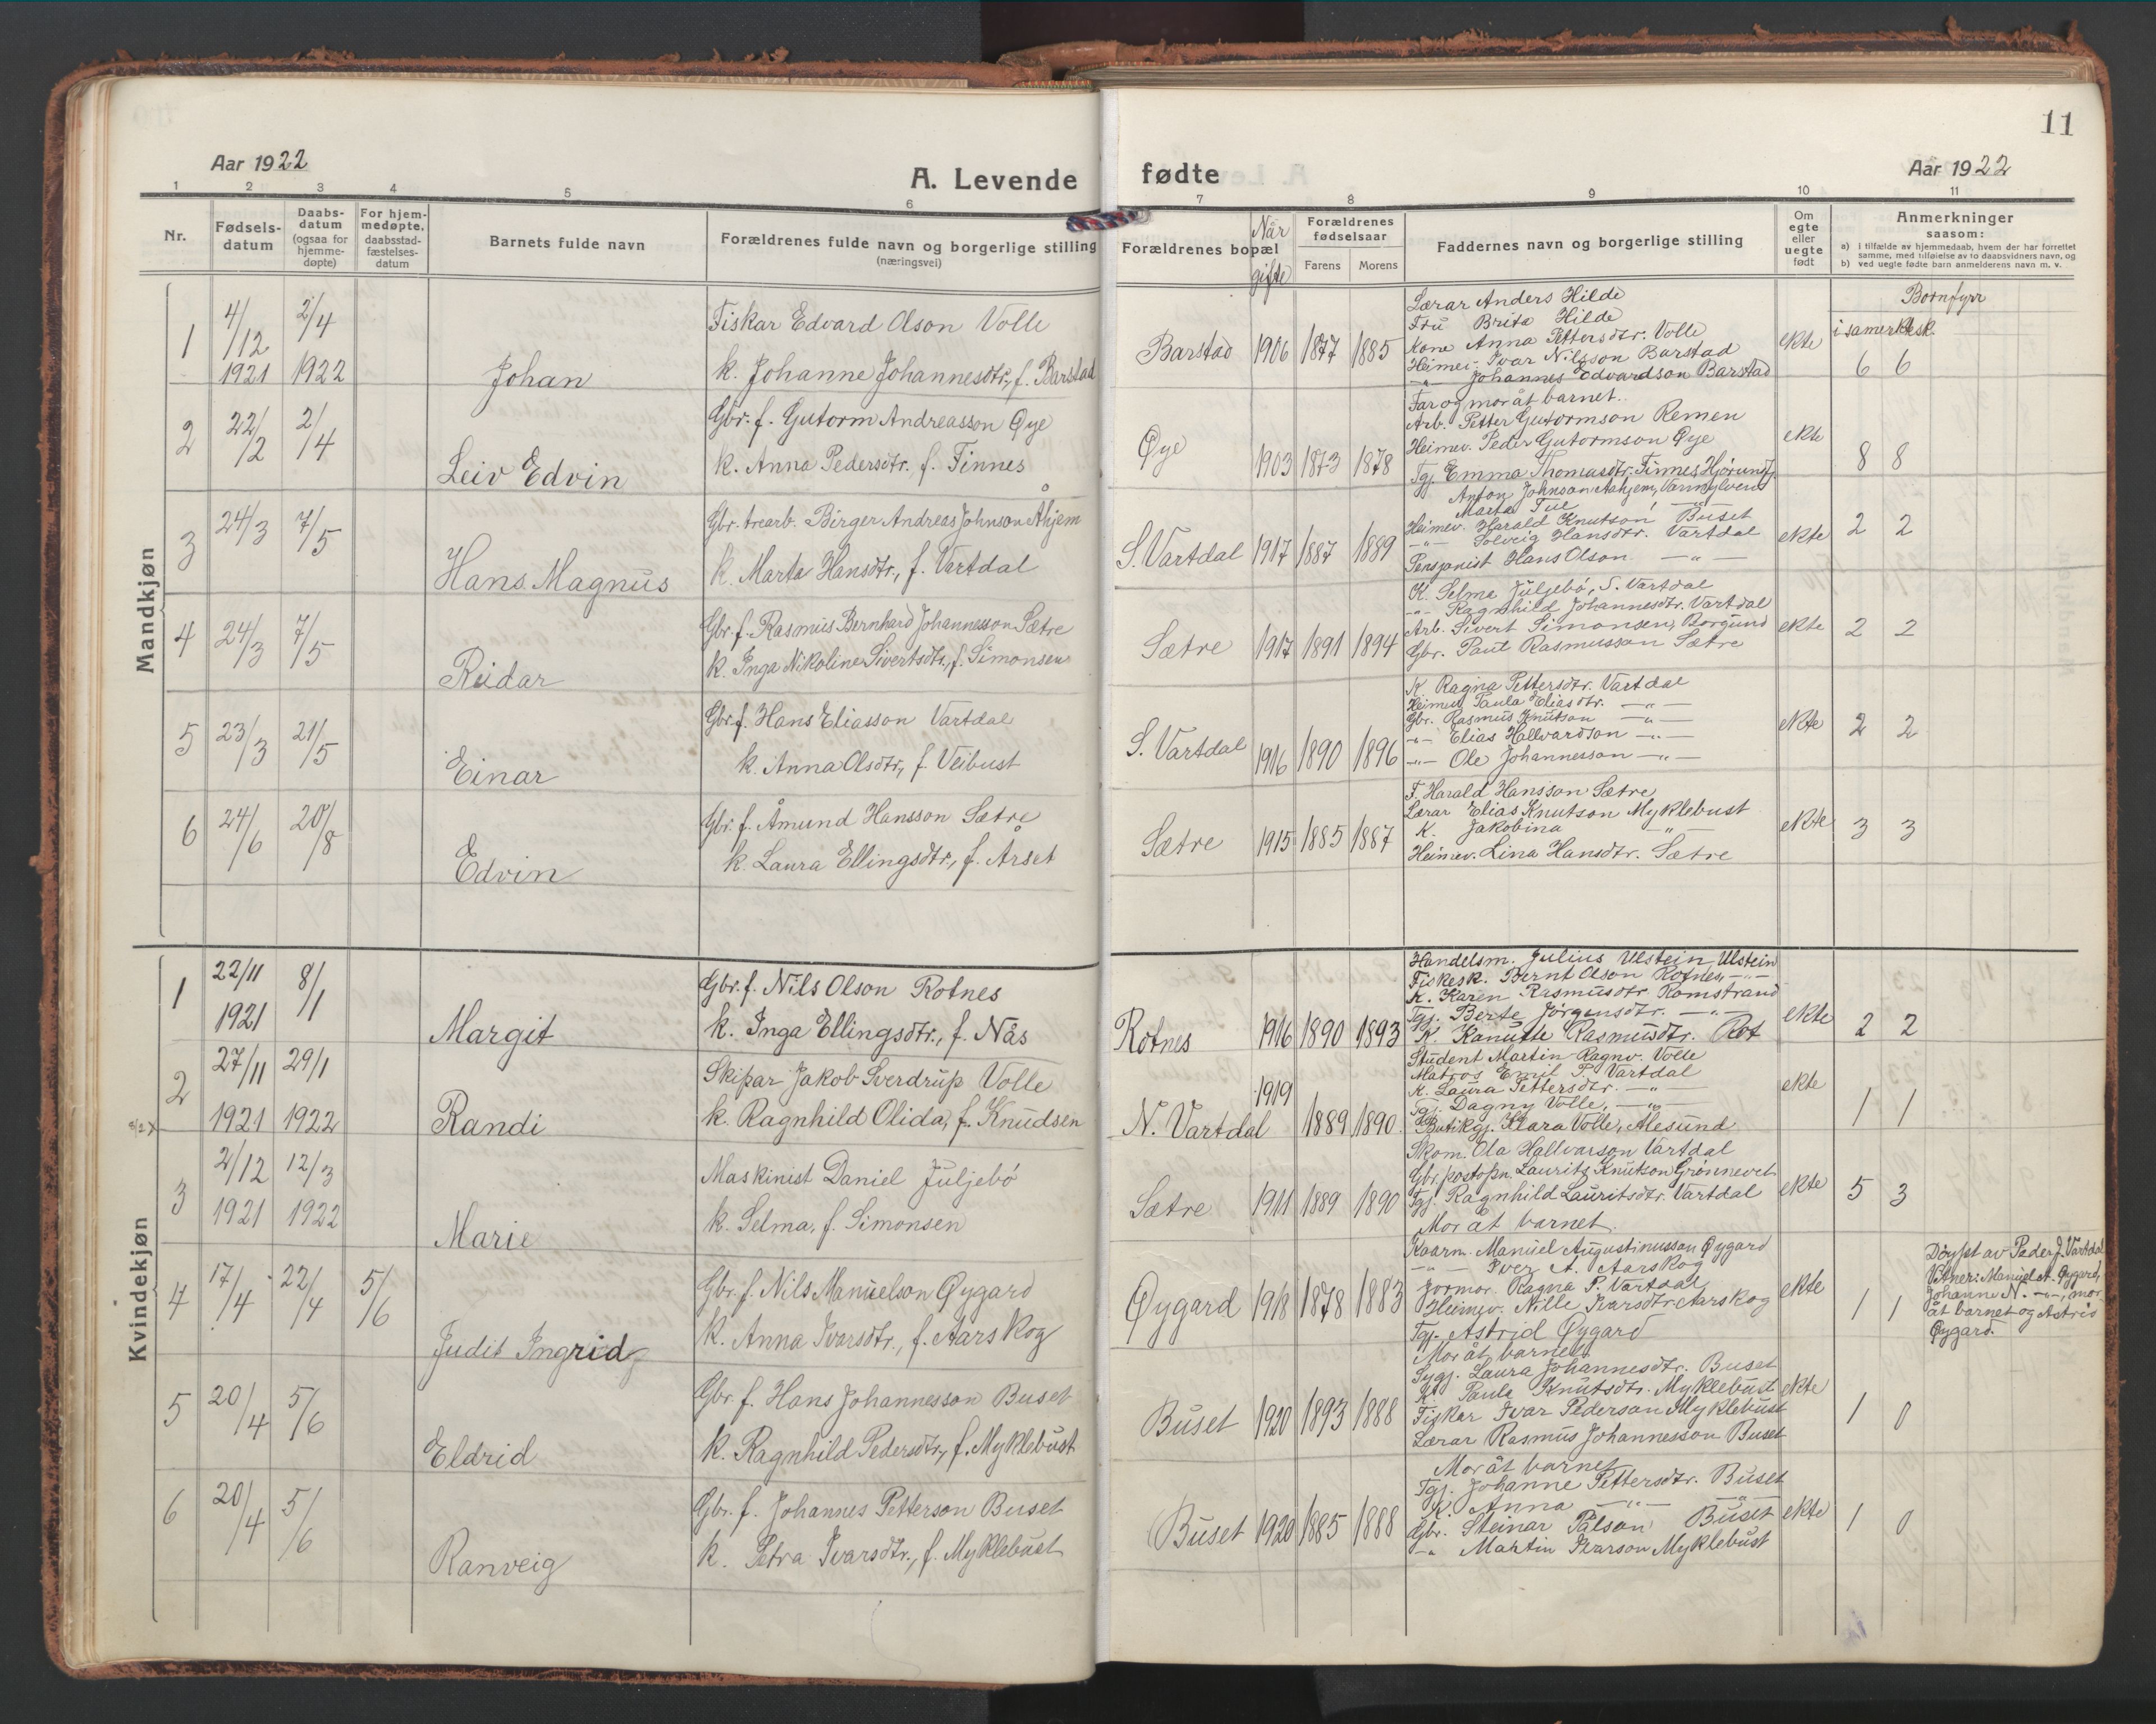 11
Aar 1922
A. Levende
fødte
Aar 1922
1 2 3 4 5 6 7 8 9 10 11
Nr.
Fødsels-
datum
Daabs-
datum
(ogsaa for
hjemme-
døpte)
For hjem-
medøpte,
daabsstad-
fæstelses-
datum
Barnets fulde navn
Forældrenes fulde navn og borgerlige stilling
(næringsvei)
Forældrenes bopæl
Når
gifte
Forældrenes
fødselsaar
Farens Morens
Faddernes navn og borgerlige stilling
Om
egte
eller
uegte
født
Anmerkninger
saasom:
a) i tilfælde av hjemmedaab, hvem der har forrettet
samme, med tilføielse av to daabsvidners navn, og
b) ved uegte fødte barn anmelderens navn m. v.
Bornfyrr
i same ektesk.
Mandkjøn
1
4/12
1921
2/4
1922
Johan
Fiskar Edvard Olson Volle
k. Johanne Johannesdtr., f. Barstad
Barstad 1906 1877 1885
Lærar Anders Hilde
Fru Brita Hilde
Kone Anna Pettersdtr. Volle
Heimev. Ivar Nilsson Barstad
-"- Johannes Edvardson Barstad
ekte
6 6
2
22/2
2/4
Leiv Edvin
Gbr. f. Gutorm Andreasson Øye
k. Anna Pedersdtr., f. Finnes
Øye 1903 1873 1878
Far og mor åt barnet.
Arb. Petter Gutormson Remen
Heimev. Peder Gutormson Øye
Tgj. Emma Thomasdtr. Finnes Hjørundfj.
ekte
8 8
3
24/3
7/5
Hans Magnus
Gbr. trearb. Birger Andreas Johnson Åhjem
k. Marta Hansdtr., f. Vartdal
S. Vartdal 1917 1887 1889
Anton Johnson Aahjem, Vannylven
Marta Tue -"-
Heimev. Harald Knutson Buset
-"- Solveig Hansdtr. Vartdal
Pensjonist Hans Olson -"-
ekte
2 2
4
24/3
7/5
Reidar
Gbr. f. Rasmus Bernhard Johannesson Sætre
k. Inga Nikoline Sivertsdtr., f. Simonsen
Sætre 1917 1891 1894
K. Selma Juljebø, S. Vartdal
-"- Ragnhild Johannesdtr. Vartdal
Arb. Sivert Simonsen, Borgund
Gbr. Paul Rasmusson Sætre
ekte
2 2
5
23/3
21/5
Einar
Gbr. f. Hans Eliasson Vartdal
k. Anna Olsdtr., f. Veibust
S. Vartdal 1916 1890 1896
K. Ragna Pettersdtr. Vartdal
Heimev. Paula Eliasdtr. -"-
Gbr. Rasmus Knutson -"-
-"- Elias Hallvardson -"-
-"- Ole Johannesson -"-
ekte
2 2
6
24/6
20/8
Edvin
Gbr. f. Åmund Hansson Sætre
k. Laura Ellingsdtr., f. Årset
Sætre 1915 1885 1887
F. Harald Hansson Sætre
Lærar Elias Knutson Myklebust
K. Jakobina -"-
Heimev. Lina Hansdtr. Sætre
ekte
3 3
Kvindekjøn
1
22/11
1921
8/1
Margit
Gbr. f. Nils Olson Rotnes
k. Inga Ellingsdtr., f. Nås
Rotnes 1916 1890 1893
Handelsm. Julius Ulstein, Ulstein
Fiskesk. Bernt Olson Rotnes, -"-
K. Karen Rasmusdtr. Romstrand
Tgj. Berte Jørgensdtr. -"-
K. Kanutte Rasmusdtr. Rot
ekte
2 2
2
27/11
1921
29/1
1922
Randi
Skipar Jakob Sverdrup Volle
k. Ragnhild Olida, f. Knudsen
N. Vartdal 1919 1889 1890
Student Martin Ragnv. Volle
Matros Emil P. Vartdal
K. Laura Pettersdtr. -"-
Tgj. Dagny Volle, -"-
Butikgj. Klara Volle, Ålesund
ekte
1 1
3
2/12
1921
12/3
1922
Marie
Maskinist Daniel Juljebø
k. Selma, f. Simonsen
Sætre 1911 1889 1890
Skom. Ola Hallvarson Vartdal
Gbr. postopn. Laurits Knutson Grønnevet
Tgj. Ragnhild Lauritsdtr. Vartdal
Mor åt barnet.
ekte
5 3
4
17/4
22/4
5/6
Judit Ingrid
Gbr. f. Nils Manuelson Øygard
k. Anna Ivarsdtr., f. Aarskog
Øygard 1918 1878 1883
Kaarm. Manuel Augustinusson Øygard
-"- Iver A. Aarskog
Jormor Ragna P. Vartdal
Heimev. Nille Ivarsdtr. Aarskog
Tgj. Astrid Øygard
ekte
1 1
Døypt av Peder J. Vartdal
Vitner: Manuel A. Øygard,
Johanne N. -"-, mor
åt barnet og Astrid
Øygard.
5
20/4
5/6
Eldrid
Gbr. f. Hans Johannesson Buset
k. Ragnhild Pedersdtr., f. Myklebust
Buset 1920 1893 1888
Mor åt barnet
Sygj. Laura Johannesdtr. Buset
K. Paula Knutsdtr. Myklebust
Fiskar Ivar Pederson Myklebust
Lærar Rasmus Johannesson Buset
ekte
1 0
6
20/4
5/6
Ranveig
Gbr. f. Johannes Petterson Buset
k. Petra Ivarsdtr., f. Myklebust
Buset 1920 1885 1888
Mor åt barnet
Tgj. Johanne Pettersdtr. Buset
K. Anna -"- -"-
Gbr. Steinar Pålson Buset
-"- Martin Ivarson Myklebust
ekte
1 0